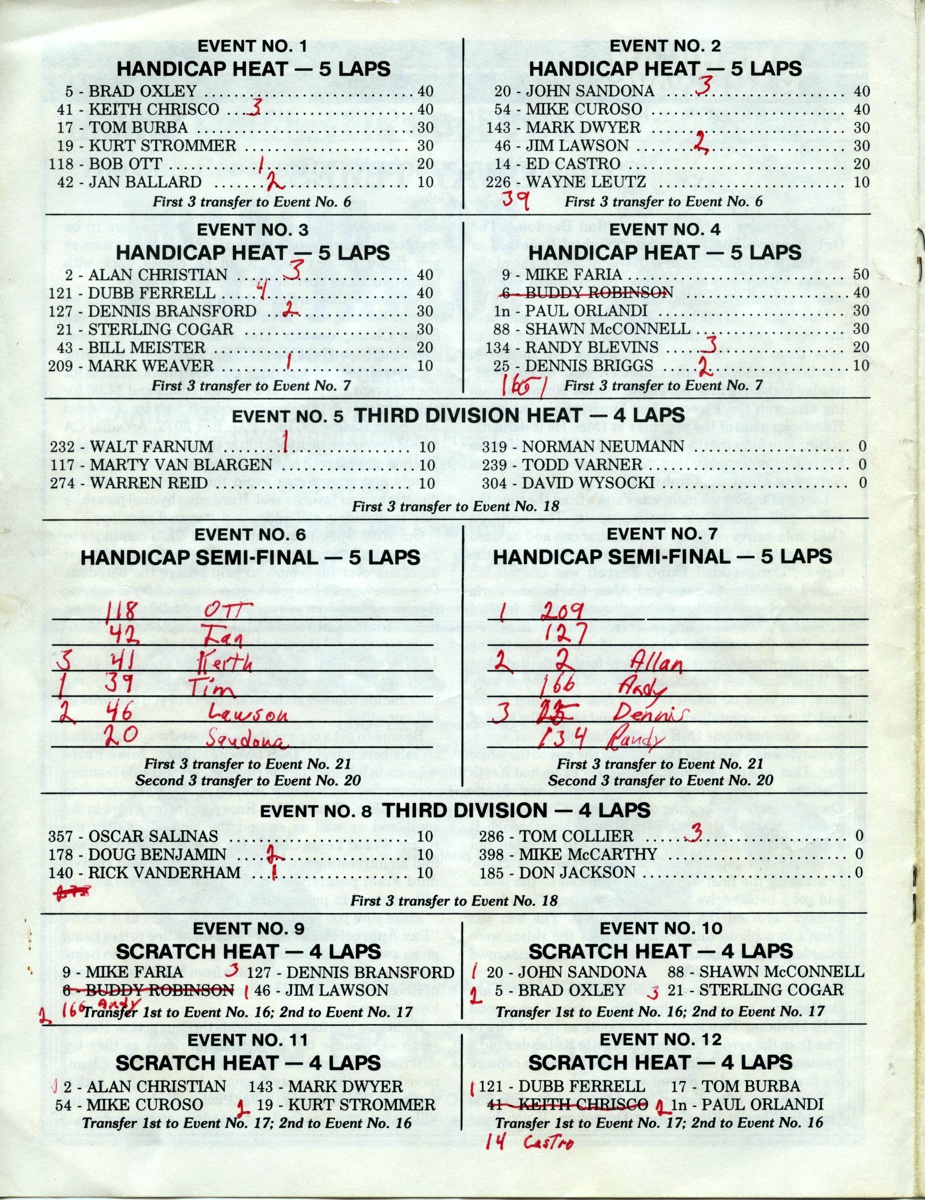 EVENT NO. 1
HANDICAP HEAT — 5 LAPS
5 - BRAD OXLEY 40
41 - KEITH CHRISCO 3 40
17 - TOM BURBA 30
19 - KURT STROMMER 30
118 - BOB OTT 1 20
42 - JAN BALLARD 2 10
First 3 transfer to Event No. 6
EVENT NO. 2
HANDICAP HEAT — 5 LAPS
20 - JOHN SANDONA 3 40
54 - MIKE CUROSO 40
143 - MARK DWYER 30
46 - JIM LAWSON 2 30
14 - ED CASTRO 20
226 - WAYNE LEUTZ 10
39 First 3 transfer to Event No. 6
EVENT NO. 3
HANDICAP HEAT — 5 LAPS
2 - ALAN CHRISTIAN 3 40
121 - DUBB FERRELL 4 40
127 - DENNIS BRANSFORD 2 30
21 - STERLING COGAR 30
43 - BILL MEISTER 20
209 - MARK WEAVER 1 10
First 3 transfer to Event No. 7
EVENT NO. 4
HANDICAP HEAT — 5 LAPS
9 - MIKE FARIA 50
6 - BUDDY ROBINSON 40
1n - PAUL ORLANDI 30
88 - SHAWN McCONNELL 30
134 - RANDY BLEVINS 3 20
25 - DENNIS BRIGGS 2 10
First 3 transfer to Event No. 7
EVENT NO. 5 THIRD DIVISION HEAT — 4 LAPS
232 - WALT FARNUM 1 10
117 - MARTY VAN BLARGEN 10
274 - WARREN REID 10
319 - NORMAN NEUMANN 0
239 - TODD VARNER 0
304 - DAVID WYSOCKI 0
First 3 transfer to Event No. 18
EVENT NO. 6
HANDICAP SEMI-FINAL — 5 LAPS
118 OTT
42 Ian
3 41 Kerth
1 39 Tim
2 46 Lawson
20 Sandona
First 3 transfer to Event No. 21
Second 3 transfer to Event No. 20
EVENT NO. 7
HANDICAP SEMI-FINAL — 5 LAPS
1 209
127
2 2 Allan
166 Andy
3 25 Dennis
134 Randy
First 3 transfer to Event No. 21
Second 3 transfer to Event No. 20
EVENT NO. 8 THIRD DIVISION — 4 LAPS
357 - OSCAR SALINAS 10
178 - DOUG BENJAMIN 2 10
140 - RICK VANDERHAM 1 10
286 - TOM COLLIER 3 0
398 - MIKE McCARTHY 0
185 - DON JACKSON 0
First 3 transfer to Event No. 18
EVENT NO. 9
SCRATCH HEAT — 4 LAPS
9 - MIKE FARIA 3 127 - DENNIS BRANSFORD
6 - BUDDY ROBINSON 1 46 - JIM LAWSON
2 166 Andy
Transfer 1st to Event No. 16; 2nd to Event No. 17
EVENT NO. 10
SCRATCH HEAT — 4 LAPS
1 20 - JOHN SANDONA 88 - SHAWN McCONNELL
2 5 - BRAD OXLEY 3 21 - STERLING COGAR
Transfer 1st to Event No. 16; 2nd to Event No. 17
EVENT NO. 11
SCRATCH HEAT — 4 LAPS
1 2 - ALAN CHRISTIAN 143 - MARK DWYER
54 - MIKE CUROSO 2 19 - KURT STROMMER
Transfer 1st to Event No. 17; 2nd to Event No. 16
EVENT NO. 12
SCRATCH HEAT — 4 LAPS
1 121 - DUBB FERRELL 17 - TOM BURBA
41 - KEITH CHRISCO 2 1n - PAUL ORLANDI
Transfer 1st to Event No. 17; 2nd to Event No. 16
14 Castro